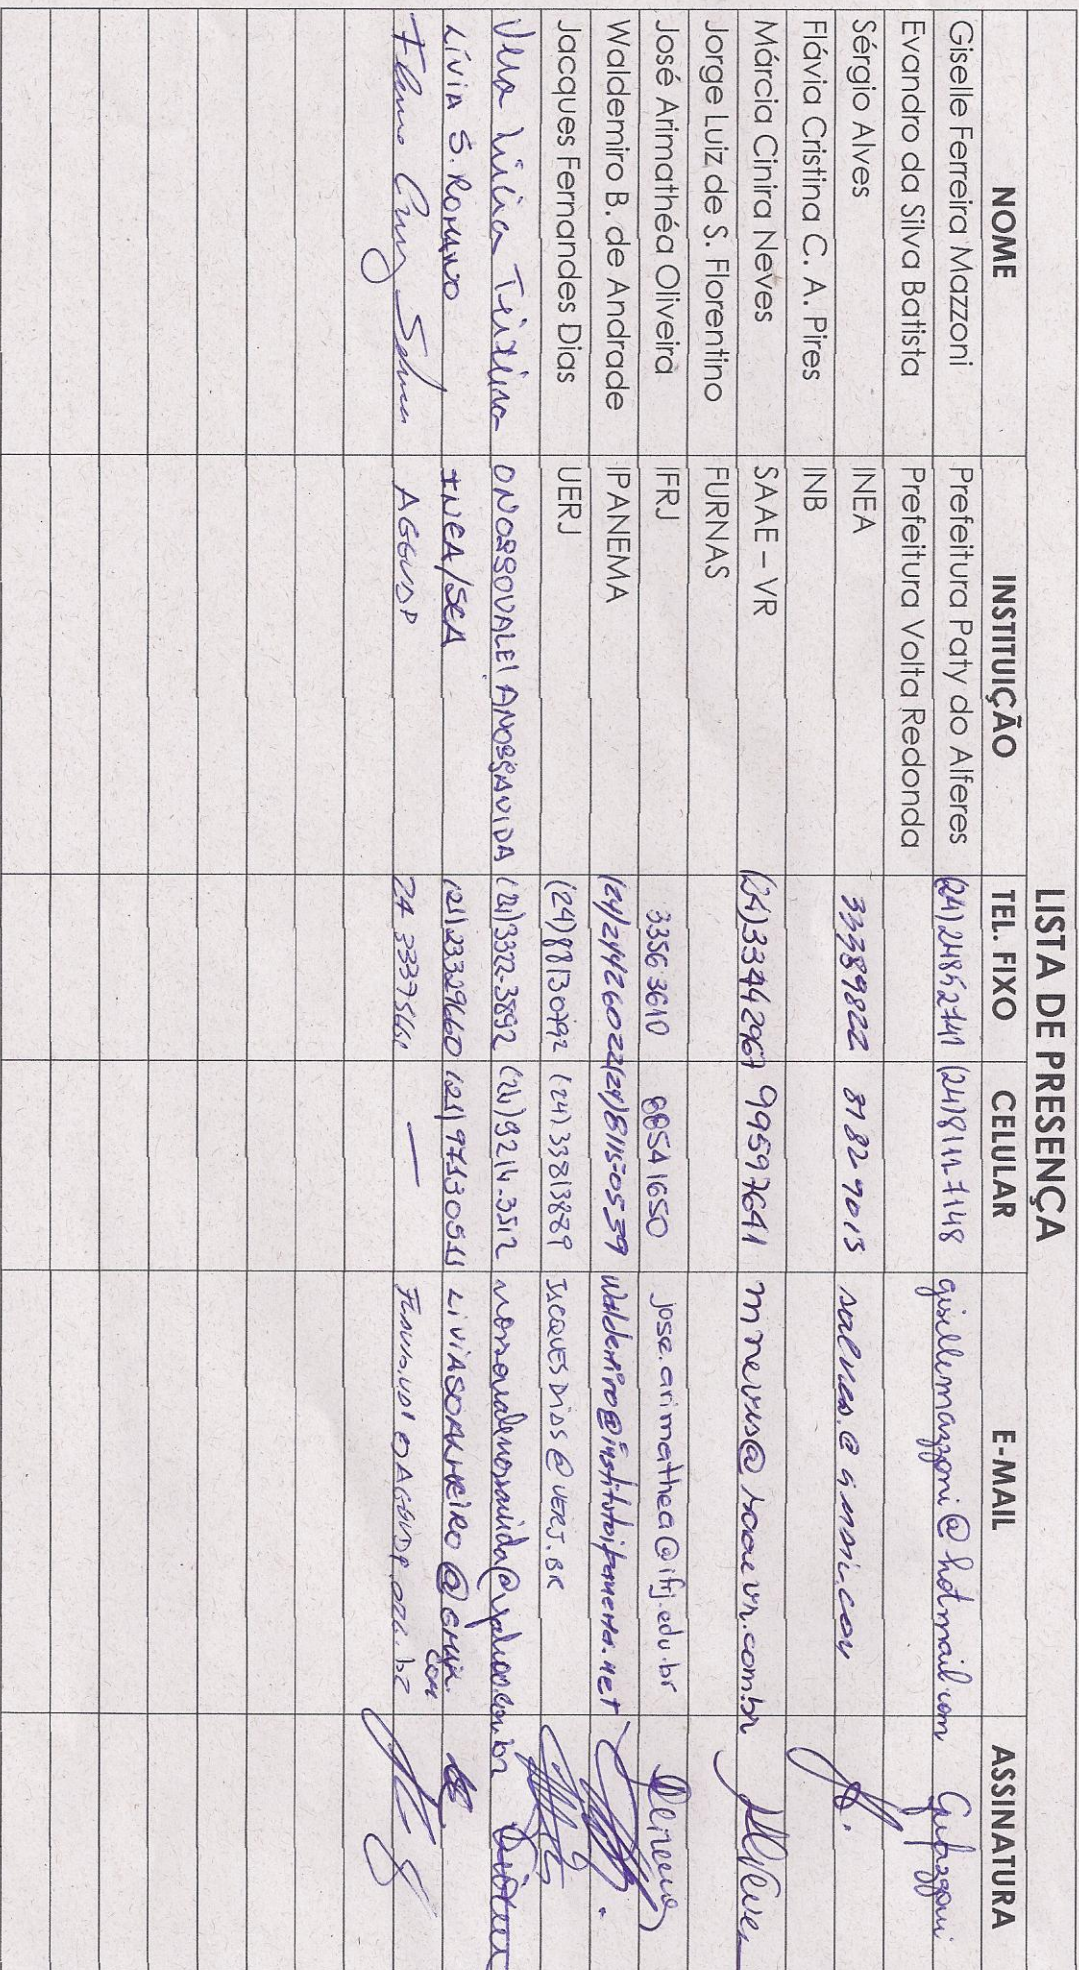 LISTA DE PRESENÇA
NOME INSTITUIÇÃO TEL. FIXO CELULAR E-MAIL ASSINATURA
Giselle Ferreira Mazzoni Prefeitura Paty do Alferes (24) 24852741 (24) 8111-7148 gisellemazzoni@hotmail.com
Evandro da Silva Batista Prefeitura Volta Redonda
Sérgio Alves INEA 33389822 8182 9013
Flávia Cristina C. A. Pires INB
Márcia Cinira Neves SAAE – VR (24) 33442967 99597641 mneves@saaevr.com.br
Jorge Luiz de S. Florentino FURNAS
José Arimathéa Oliveira IFRJ 3356 3610 88541650 jose.arimathea@ifrj.edu.br
Waldemiro B. de Andrade IPANEMA (24) 24426022 (24) 8115-0539 Waldemiro@institutoipanema.net
Jacques Fernandes Dias UERJ (24) 88130792 (24) 33813889 JACQUESDIAS@UERJ.BR
Vera Lúcia Teixeira ONOSSOVALE! ANOSSAVIDA (24) 3322-3892 (24) 9214-3512 nossovalenossavida@yahoo.com.br
LÍVIA S. ROMANO INEA/SEA (21) 23329660 (21) 97130511
AGEVAP —